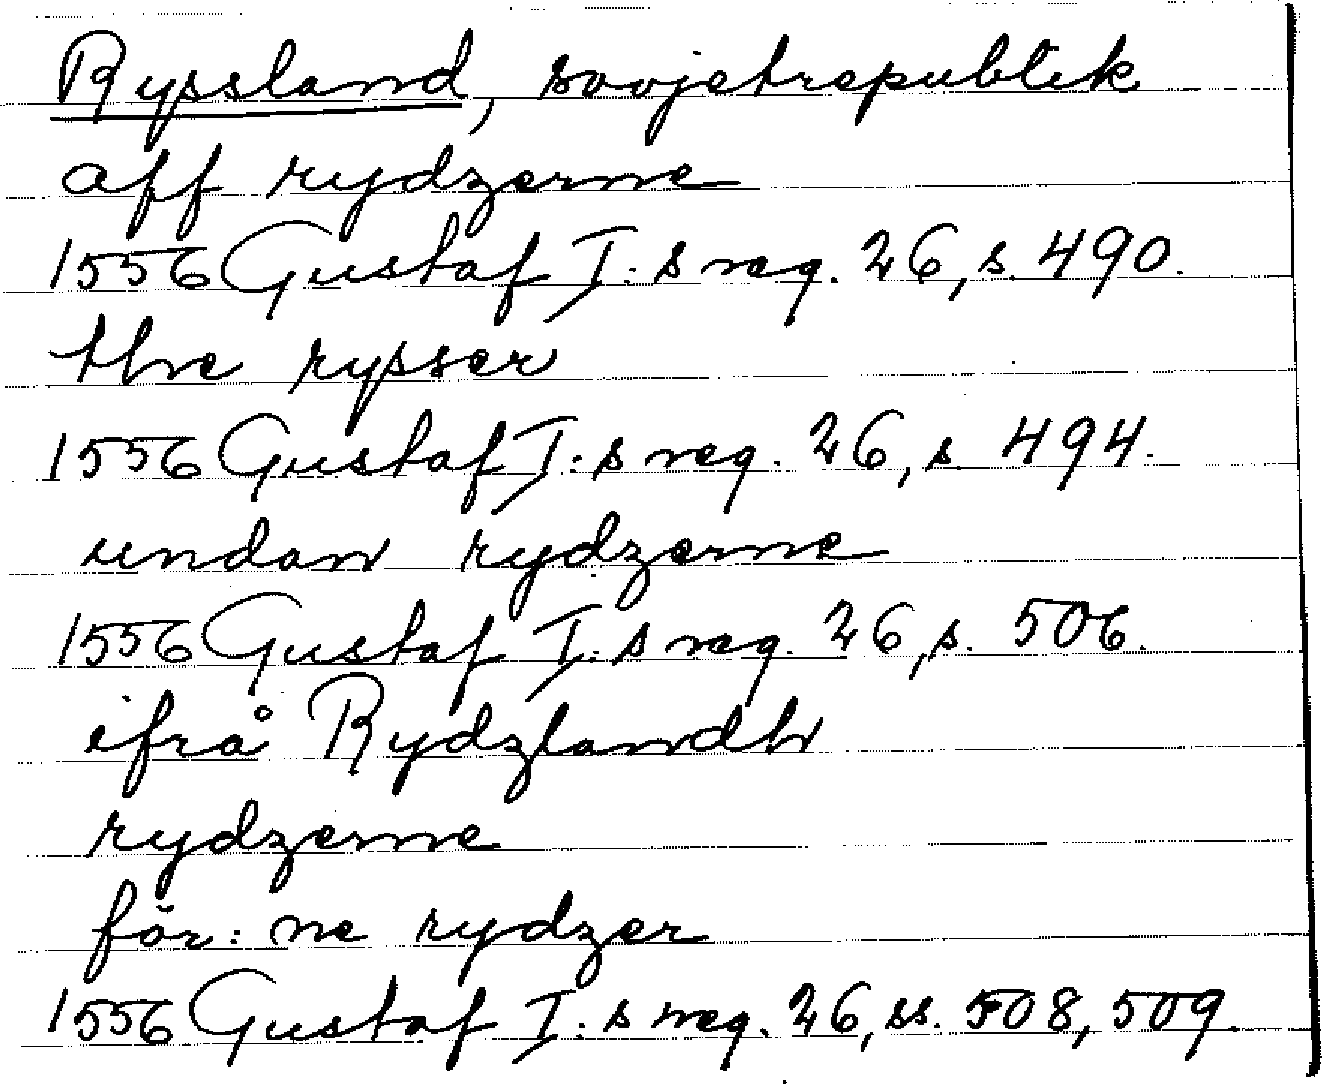 Ryssland, sovjetrepublik
aff rydzerne
1556 Gustaf I:s reg. 26, s. 490.
the rysser
1556 Gustaf I:s reg. 26, s. 494.
undan rydzerne
1556 Gustaf I:s reg. 26, s. 506.
ifrå Rydzlandh
rydzerne
för:ne rydzer
1556 Gustaf I:s reg. 26, ss. 508, 509.